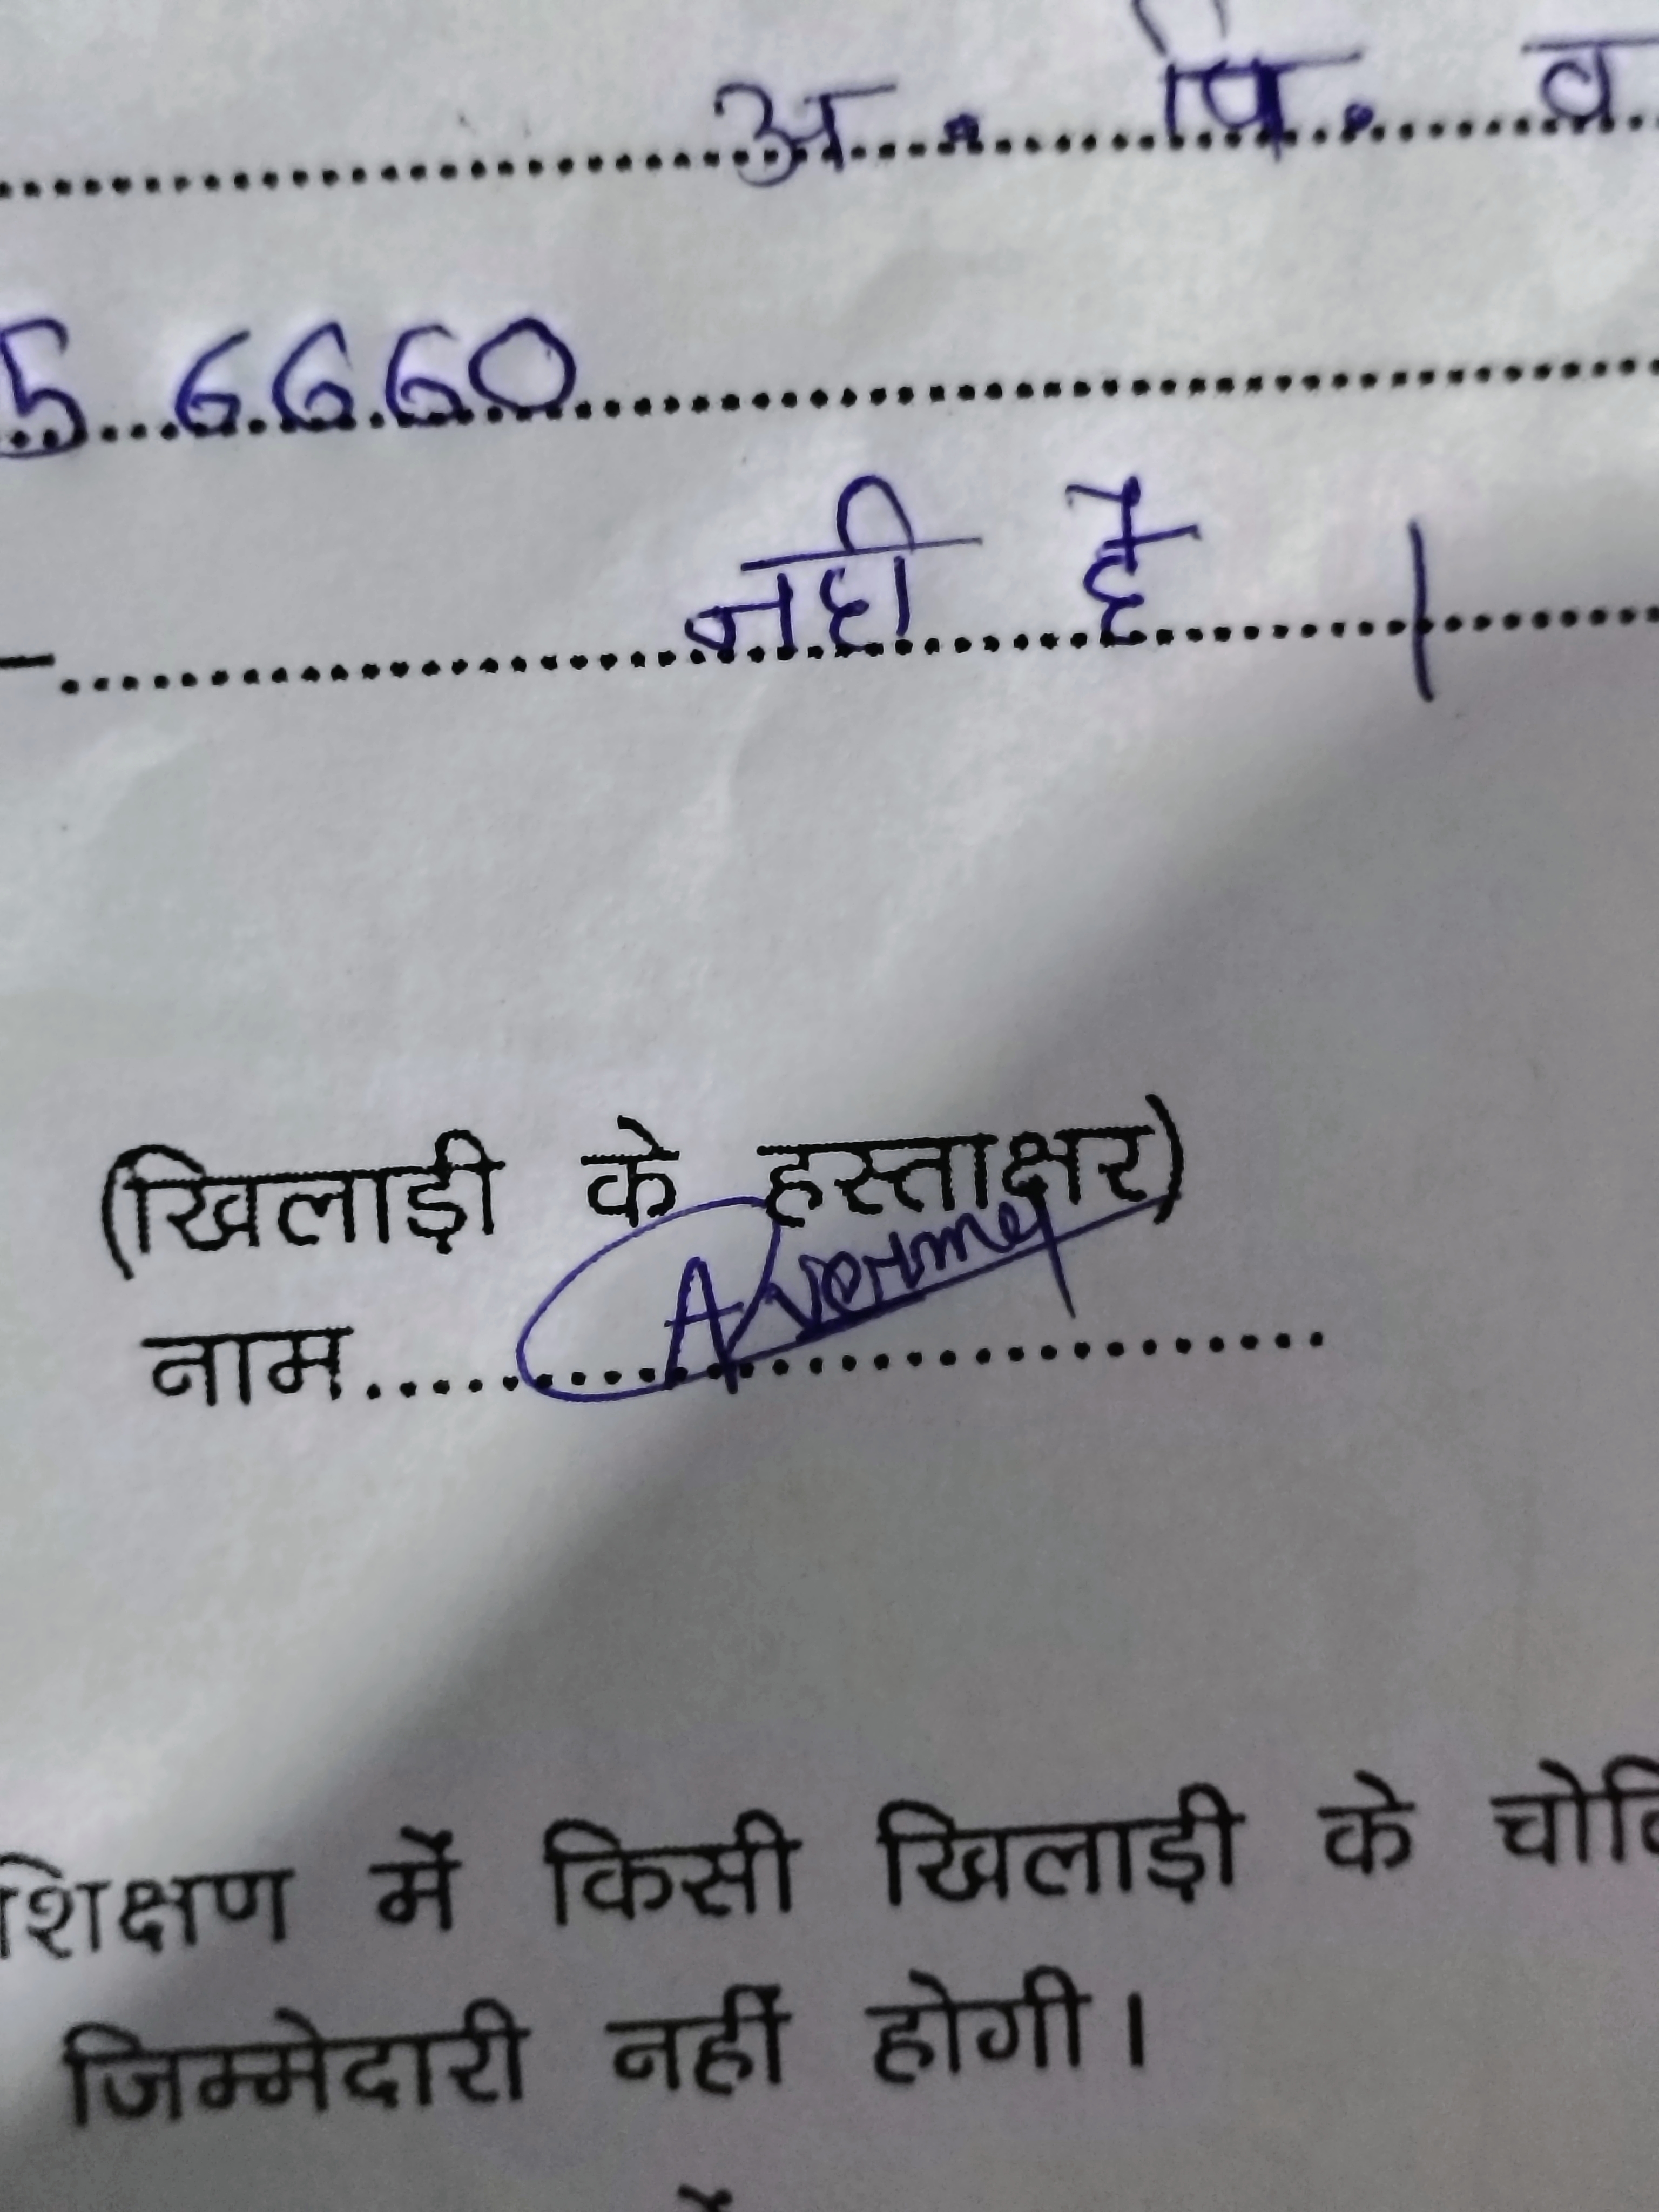 अ. पि. व
5 6660
नही है ।
(खिलाड़ी के हस्ताक्षर)
नाम....................
शिक्षण में किसी खिलाड़ी के चोटि
जिम्मेदारी नहीं होगी।